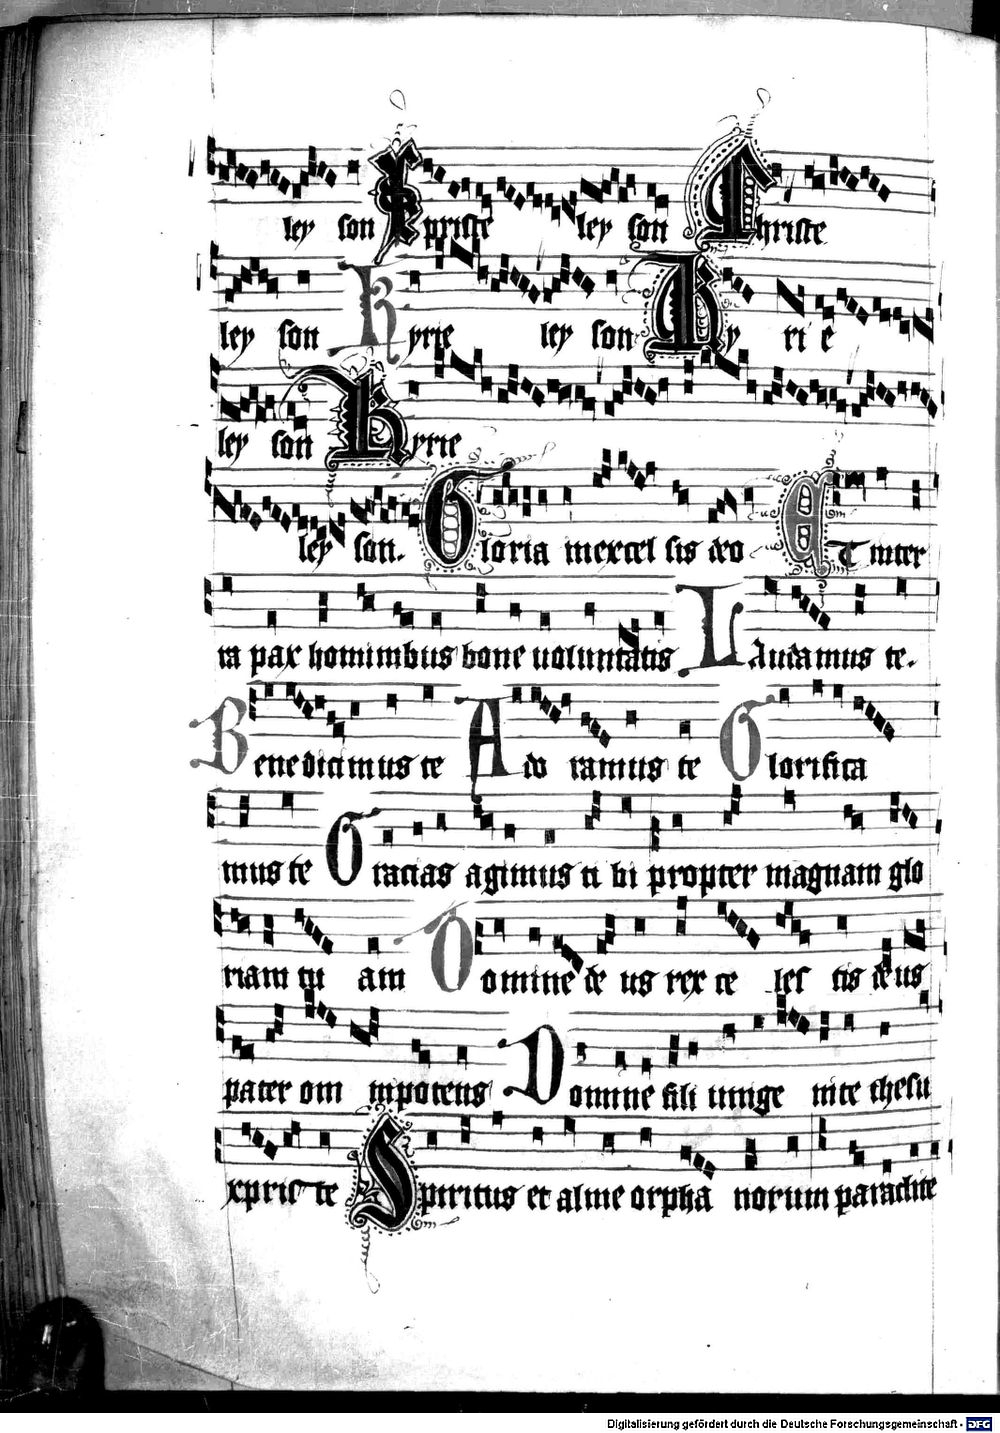 ley son Xpriste ley son Christe
ley son Kyrie ley son Ky ri e
ley son Kyrie
ley son. Gloria in excel sis deo ET in ter
ra pax hominibus bone uoluntatis LAudamus te.
Benedicimus te Ado ramus te Glorifica
mus te Gracias agimus ti bi propter magnam glo
riam tu am Domine de us rex ce les tis de us
pater om nipotens Domine fili unige nite ihesu
xpris te Spiritus et alme orpha norum paraclite
Digitalisierung gefördert durch die Deutsche Forschungsgemeinschaft - DFG